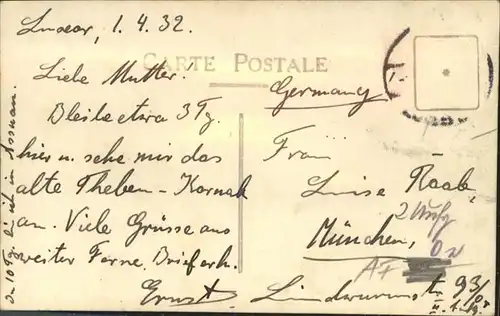 Luxor, 1.4.32.
CARTE POSTALE
Liebe Mutter.
Bleibe etwa 3 Tg.
hier u. sehe mir das
alte Theben - Karnak
an. Viele Grüsse aus
weiter Ferne. Brief erh.
Ernst
In 10 Tg. bin ich in Assuan.
Germany
Frau
Luise Raab,
München,
Lindwurmst. 93/